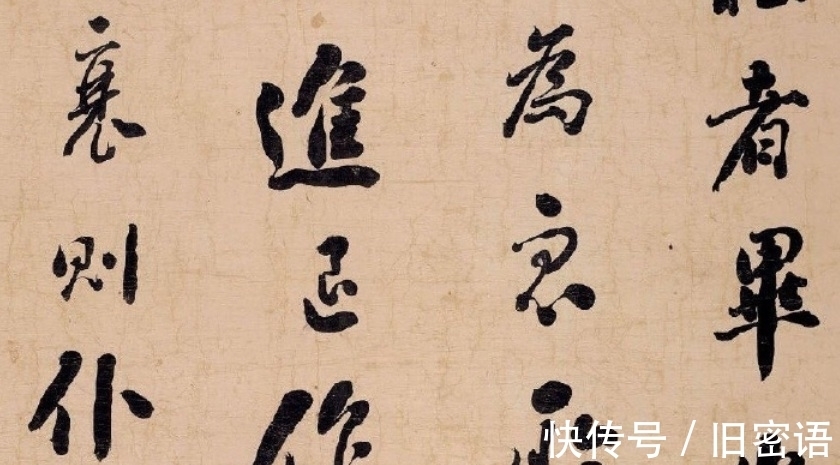 者畢
為
進退作
衰則仆
快传号 / 旧密语